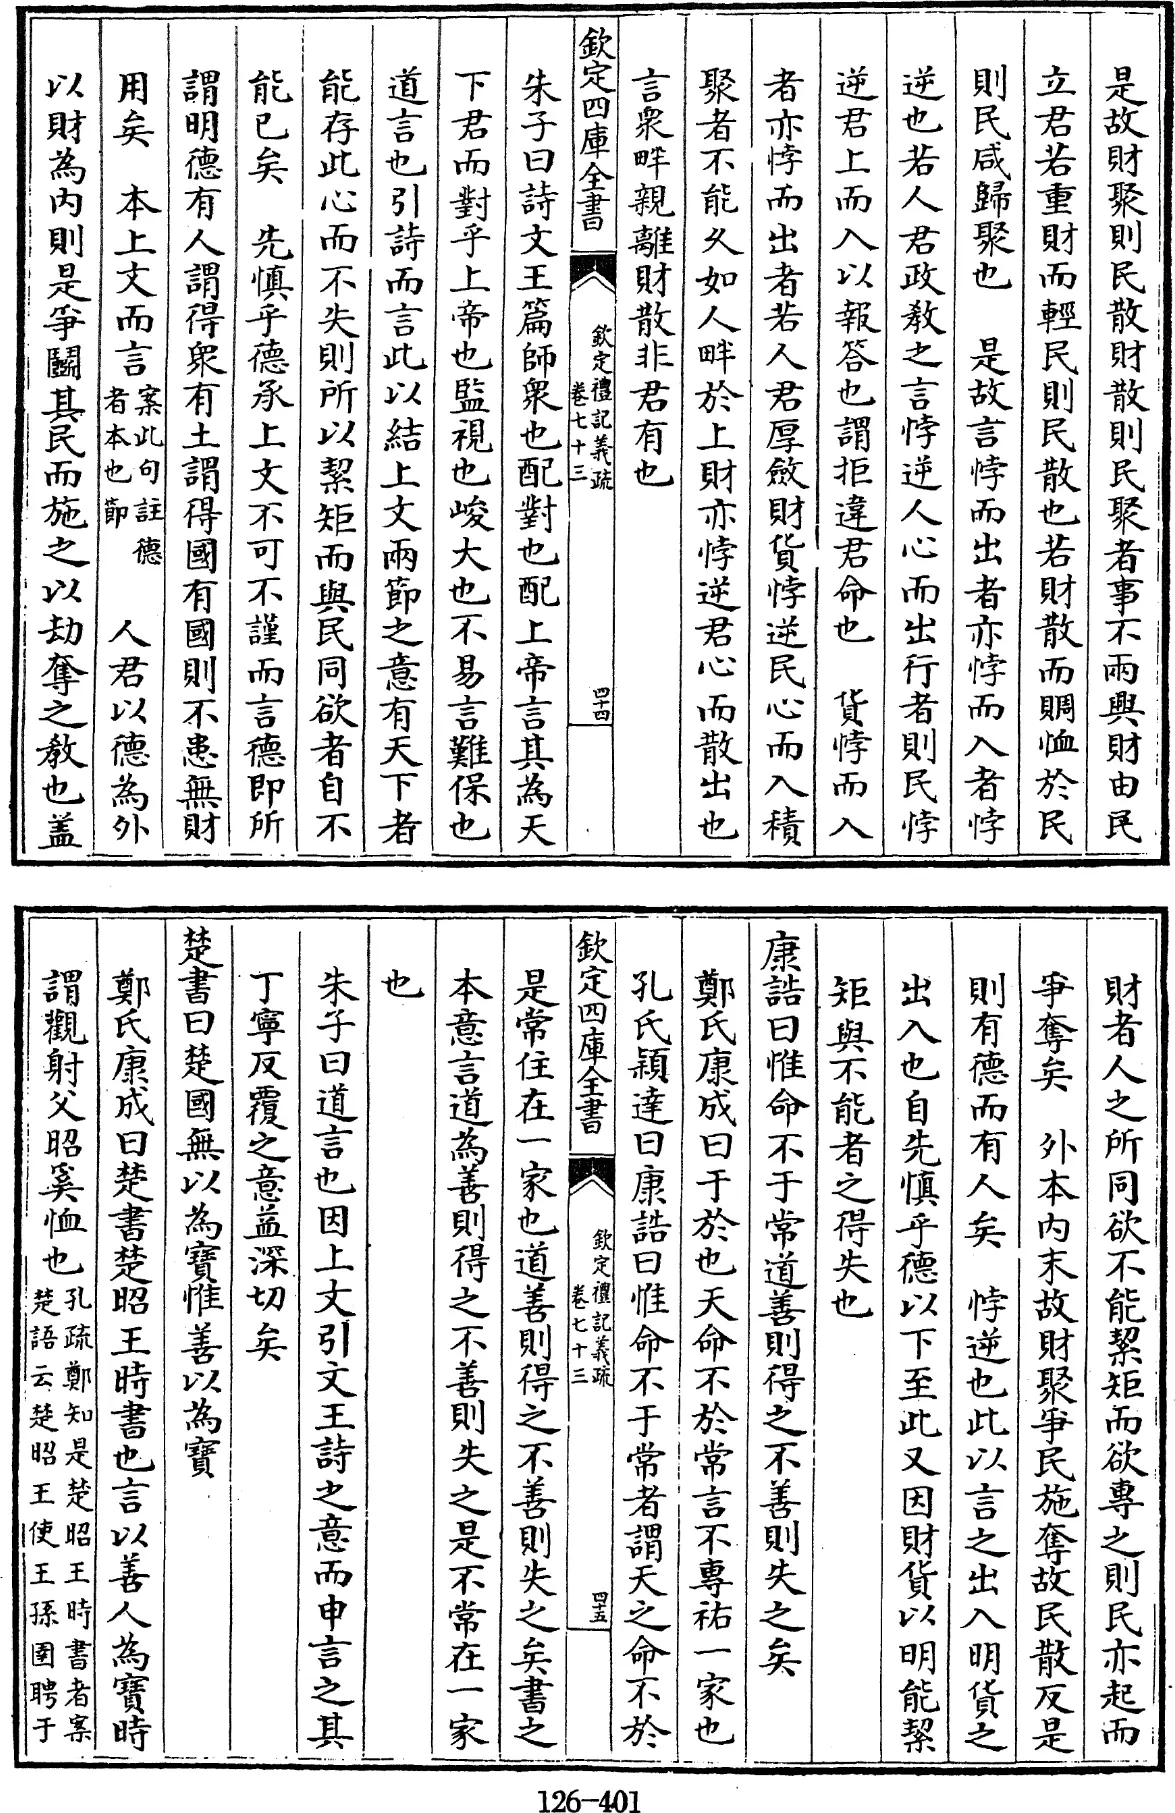 是故財聚則民散財散則民聚者事不兩興財由民
立君若重財而輕民則民散也若財散而賙恤於民
則民咸歸聚也　是故言悖而出者亦悖而入者悖
逆也若人君政教之言悖逆人心而出行者則民悖
逆君上而入以報答也謂拒違君命也　貨悖而入
者亦悖而出者若人君厚斂財貨悖逆民心而入積
聚者不能久如人畔於上財亦悖逆君心而散出也
言衆畔親離財散非君有也
欽定四庫全書
欽定禮記義疏
卷七十三
四十四
朱子曰詩文王篇師衆也配對也配上帝言其為天
下君而對乎上帝也監視也峻大也不易言難保也
道言也引詩而言此以結上文兩節之意有天下者
能存此心而不失則所以絜矩而與民同欲者自不
能已矣　先慎乎德承上文不可不謹而言德即所
謂明德有人謂得衆有土謂得國有國則不患無財
用矣　本上文而言案此句註德者本也節　人君以德為外
以財為内則是爭鬬其民而施之以劫奪之教也蓋
財者人之所同欲不能絜矩而欲專之則民亦起而
爭奪矣　外本内末故財聚爭民施奪故民散反是
則有德而有人矣　悖逆也此以言之出入明貨之
出入也自先慎乎德以下至此又因財貨以明能絜
矩與不能者之得失也
康誥曰惟命不于常道善則得之不善則失之矣
鄭氏康成曰于於也天命不於常言不專祐一家也
孔氏穎達曰康誥曰惟命不于常者謂天之命不於
欽定四庫全書
欽定禮記義疏
卷七十三
四十五
是常住在一家也道善則得之不善則失之矣書之
本意言道為善則得之不善則失之是不常在一家
也
朱子曰道言也因上文引文王詩之意而申言之其
丁寧反覆之意益深切矣
楚書曰楚國無以為寶惟善以為寶
鄭氏康成曰楚書楚昭王時書也言以善人為寶時
謂觀射父昭奚恤也孔疏鄭知是楚昭王時書者案楚語云楚昭王使王孫圉聘于
126-401